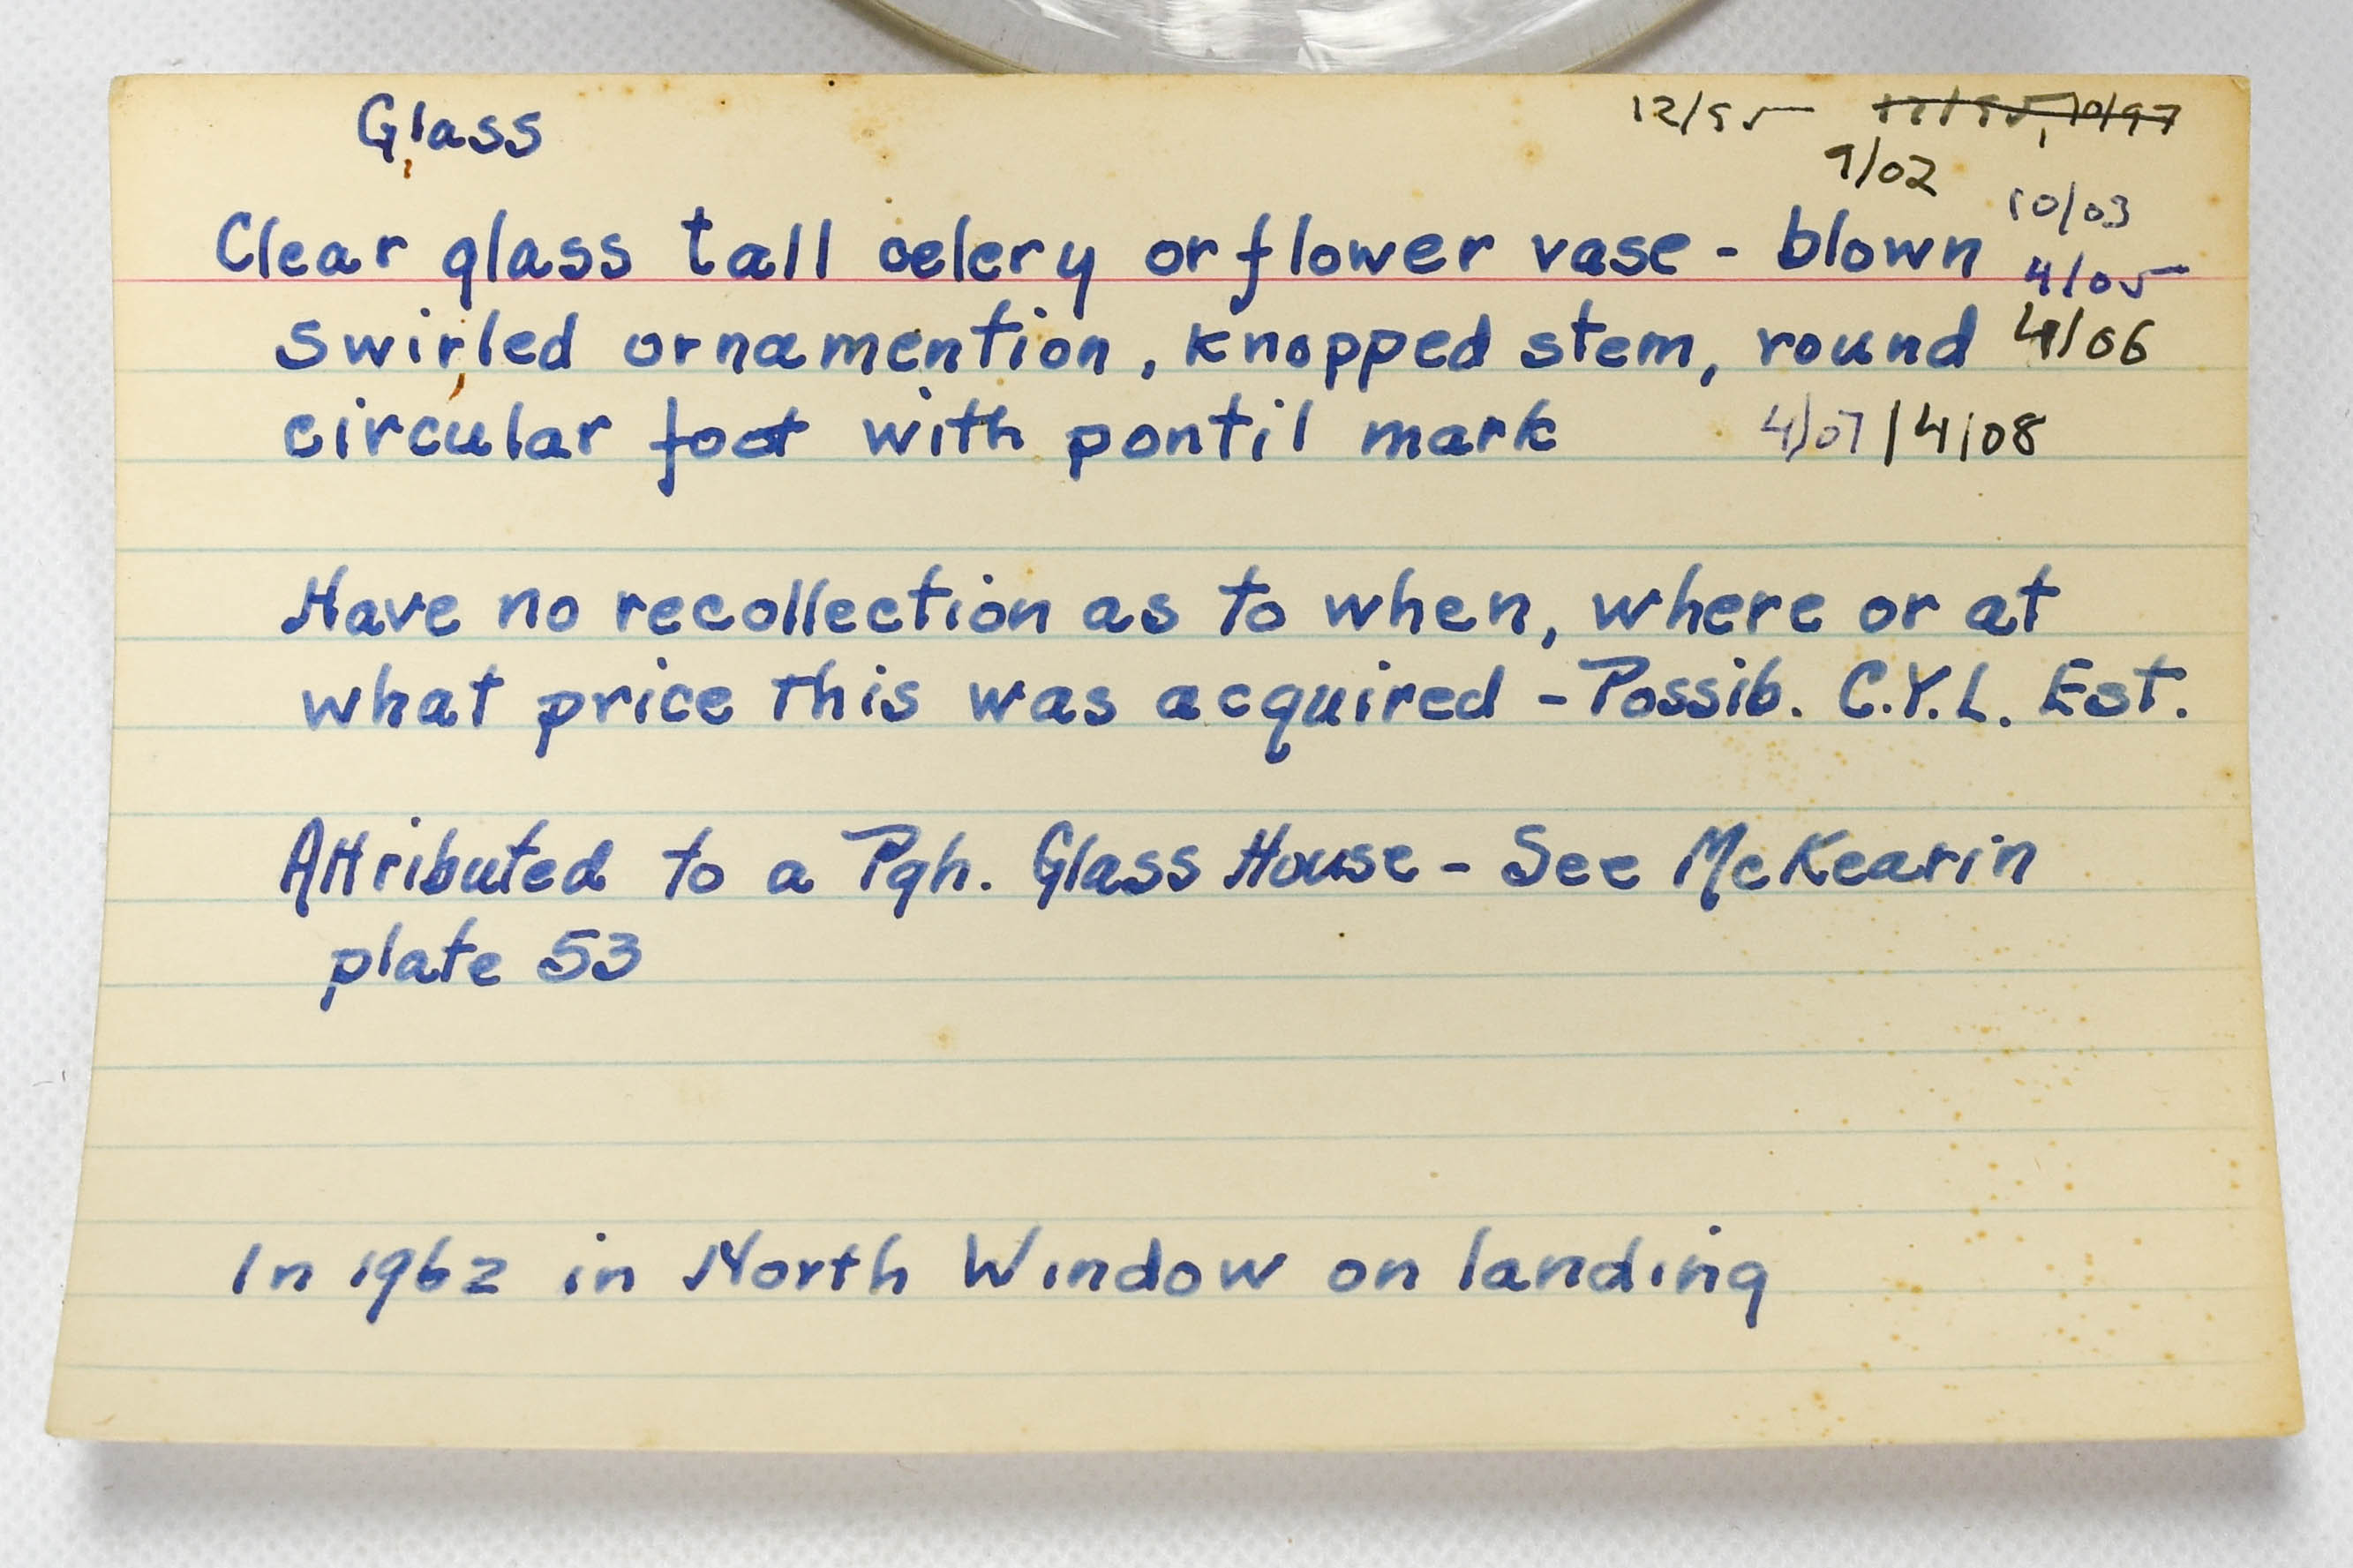 Glass
12/95 10/97
9/02
10/03
Clear glass tall celery or flower vase - blown
4/05
swirled ornamention, knopped stem, round 4/06
circular foot with pontil mark 4/07 | 4/08
Have no recollection as to when, where or at
what price this was acquired - Possib. C.Y.L. Est.
Attributed to a Pgh. Glass House - See McKearin
plate 53
In 1962 in North Window on landing